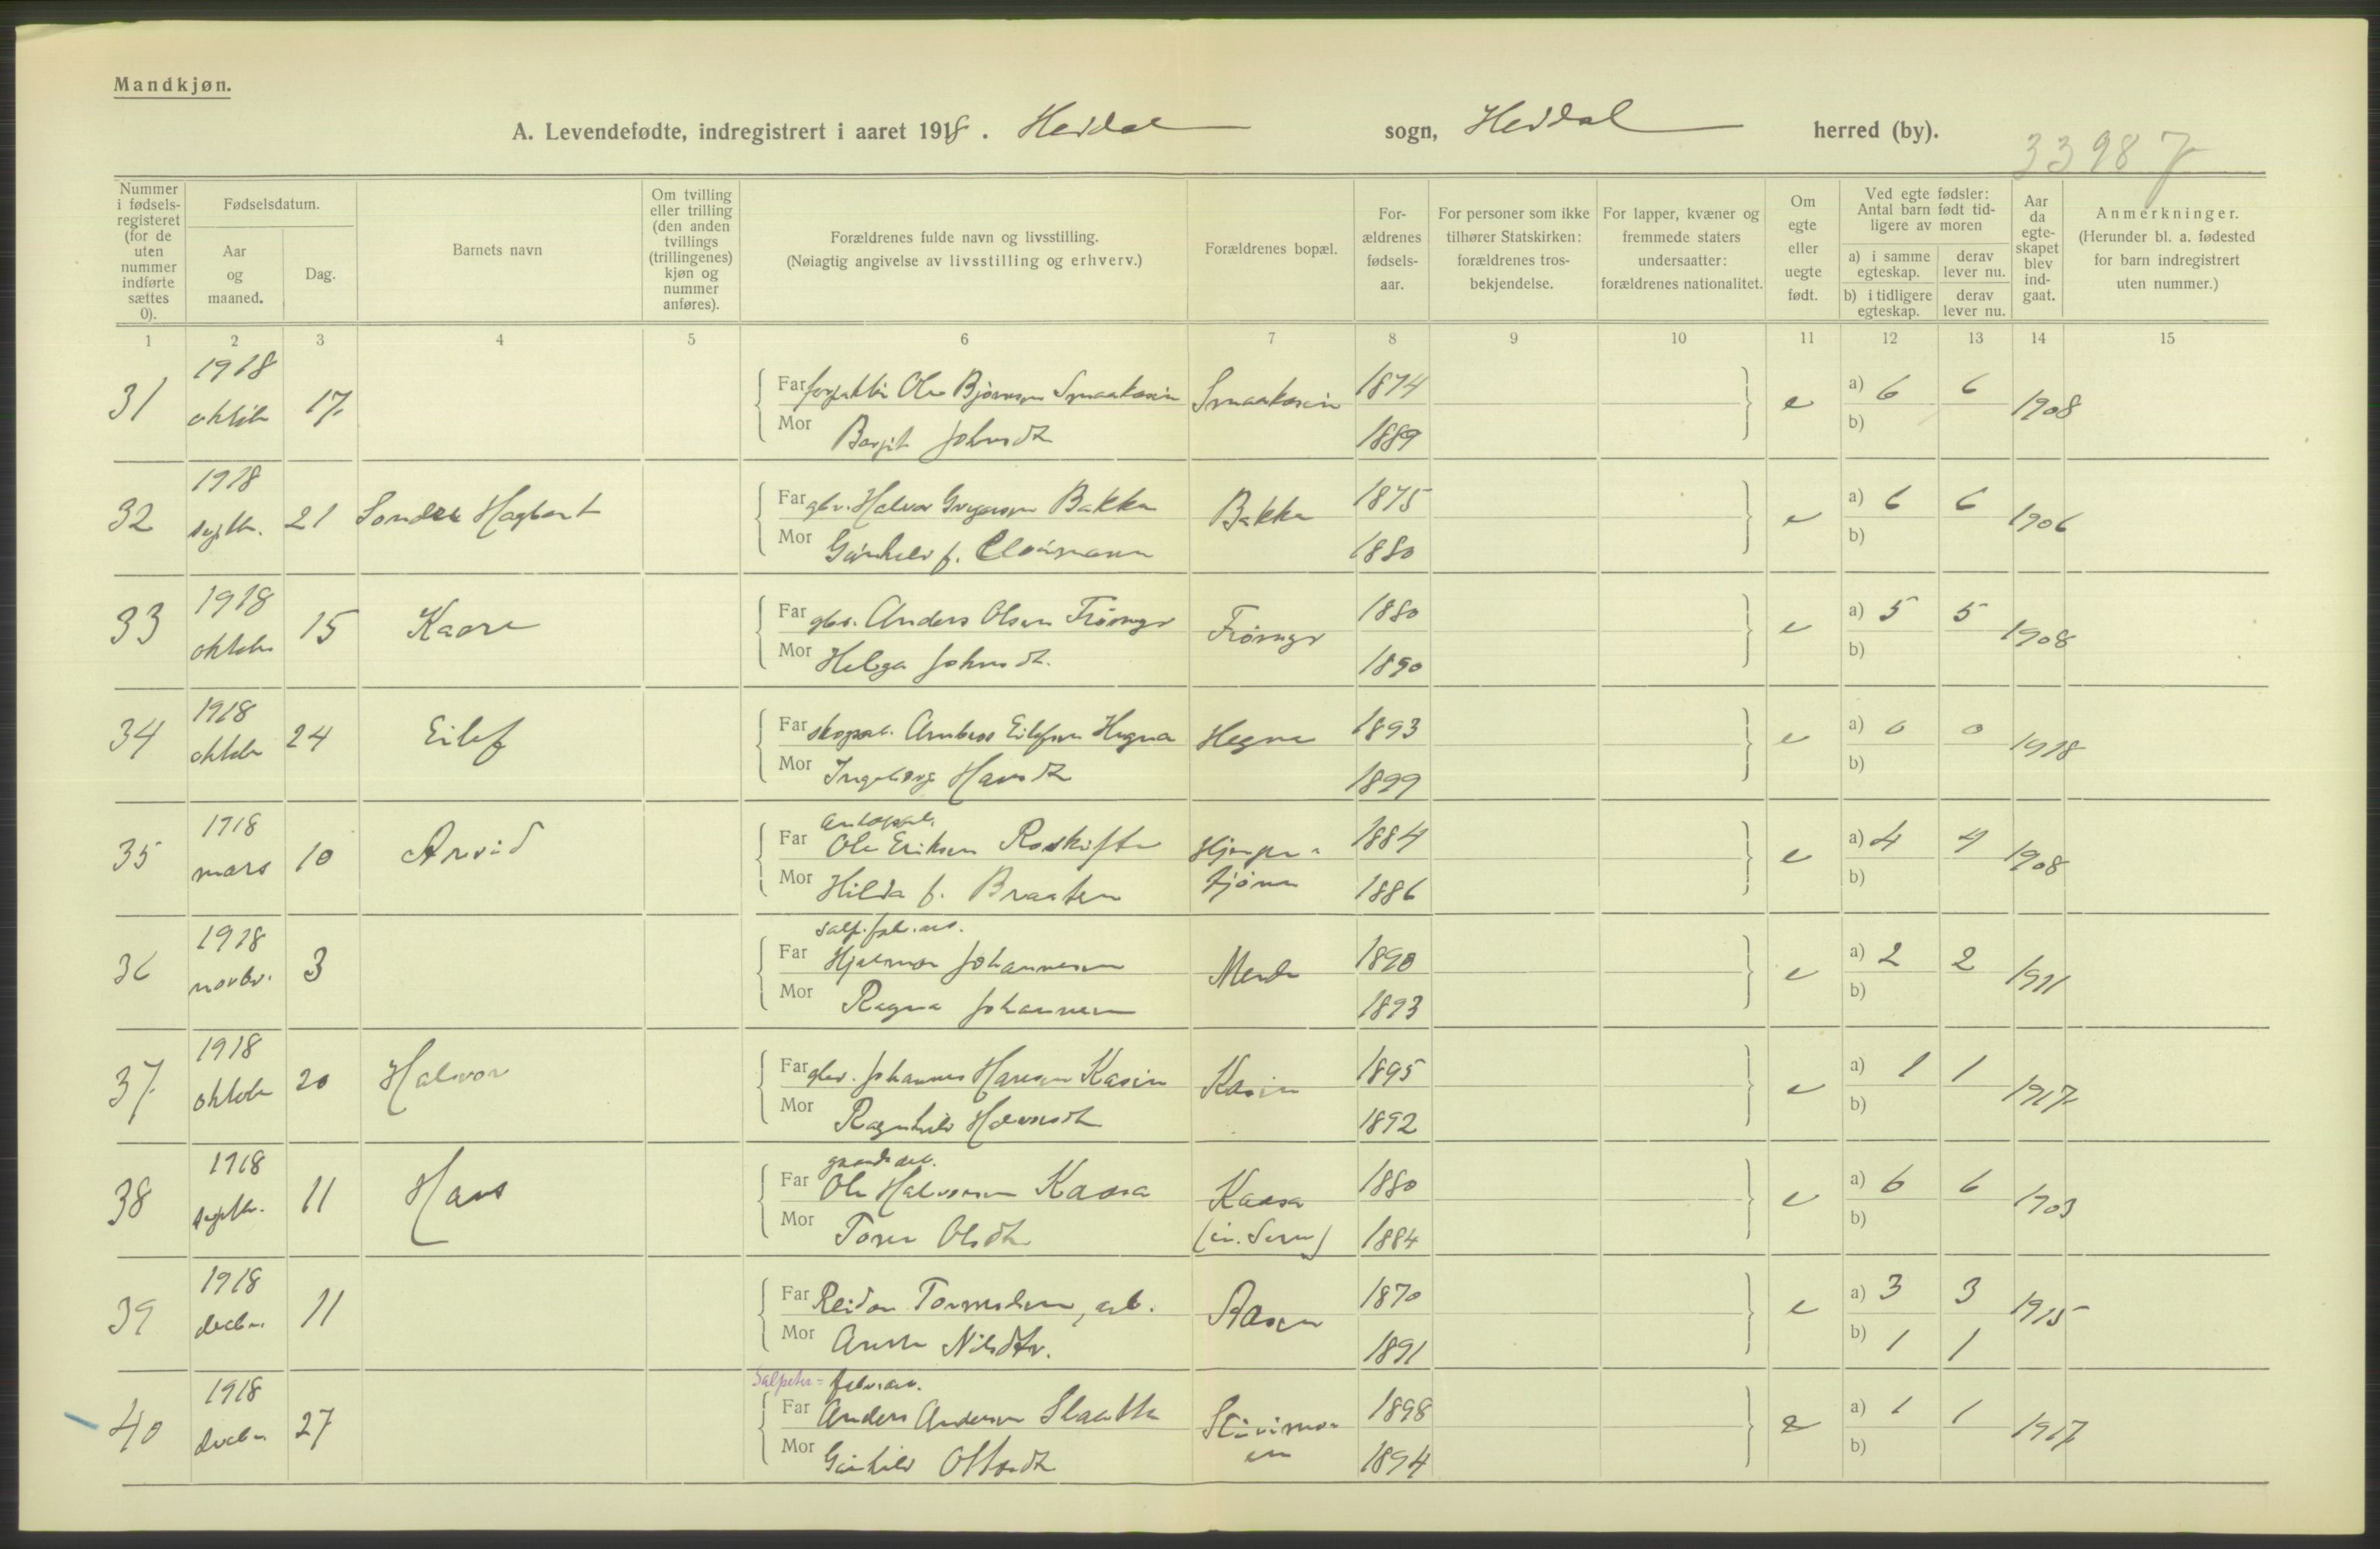 Mandkjøn.
A. Levendefødte, indregistrert i aaret 1918. Heddal sogn, Heddal herred (by).
33987
Nummer i fødsels-registeret (for de uten nummer indførte sættes 0).
Fødselsdatum.
Aar og maaned.
Dag.
Barnets navn
Om tvilling eller trilling (den anden tvillings (trillingenes) kjøn og nummer anføres).
Forældrenes fulde navn og livsstilling.
(Nøiagtig angivelse av livsstilling og erhverv.)
Forældrenes bopæl.
For-ældrenes fødsels-aar.
For personer som ikke tilhører Statskirken: forældrenes tros-bekjendelse.
For lapper, kvæner og fremmede staters undersaatter: forældrenes nationalitet.
Om egte eller uegte født.
Ved egte fødsler: Antal barn født tid-ligere av moren
a) i samme egteskap.
derav lever nu.
b) i tidligere egteskap.
derav lever nu.
Aar da egte-skapet blev ind-gaat.
Anmerkninger.
(Herunder bl. a. fødested for barn indregistrert uten nummer.)
1 2 3 4 5 6 7 8 9 10 11 12 13 14 15
31 1918 oktbr 17
Far Ole Bjørnsen Smaakasin Smaakasin 1874 e a) 6 6 1908
Mor Bergit Johnsdt 1889 b)
32 1918 septbr. 21 Sondre Hagbart
Far gbr. Halvor Gregersen Bakka Bakka 1875 e a) 6 6 1906
Mor Gunhild f. 1880 b)
33 1918 oktober 15 Kaare
Far gbr. Anders Olsen 1880 e a) 5 5 1908
Mor Helga Johnsdt. 1890 b)
34 1918 oktober 24 Eilef
Far Eilefsen Hegna Hegna 1893 e a) 0 0 1918
Mor Ingeborg Hansdt 1899 b)
35 1918 mars 10 Arvid
Far Ole Eriksen Roskifte 1884 e a) 4 4 1908
Mor Hilda f. Braaten 1886 b)
36 1918 novbr. 3
salp.fabr.arb.
Far Hjalmar Johannesen 1890 e a) 2 2 1911
Mor Ragna Johannesen 1893 b)
37 1918 oktober 20 Halvor
Far gbr. Johannes Hansen Kasin Kasin 1895 e a) 1 1 1917
Mor Ragnhild Halvorsdt 1892 b)
38 1918 septbr. 11 Hans
gaardsarb.
Far Ole Halvorsen Kaasa Kaasa 1880 e a) 6 6 1903
Mor Tone Olsdt 1884 b)
39 1918 decbr. 11
Far Reidar Tormodsen, arb. Aasen 1870 e a) 3 3 1915
Mor Anne Nilsdtr. 1891 b) 1 1
40 1918 decbr. 27
Salpeter= fabr.arb.
Far Anders Andersen Slaatta 1898 e a) 1 1 1917
Mor Gunhild Ottosdt 1894 b)